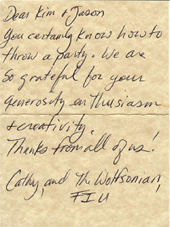 Dear Kim + Jason
You certainly know how to
throw a party. We are
so grateful for your
generosity enthusiasm
+ creativity.
Thanks from all of us!
Cathy and The Wolfsonian,
FIU